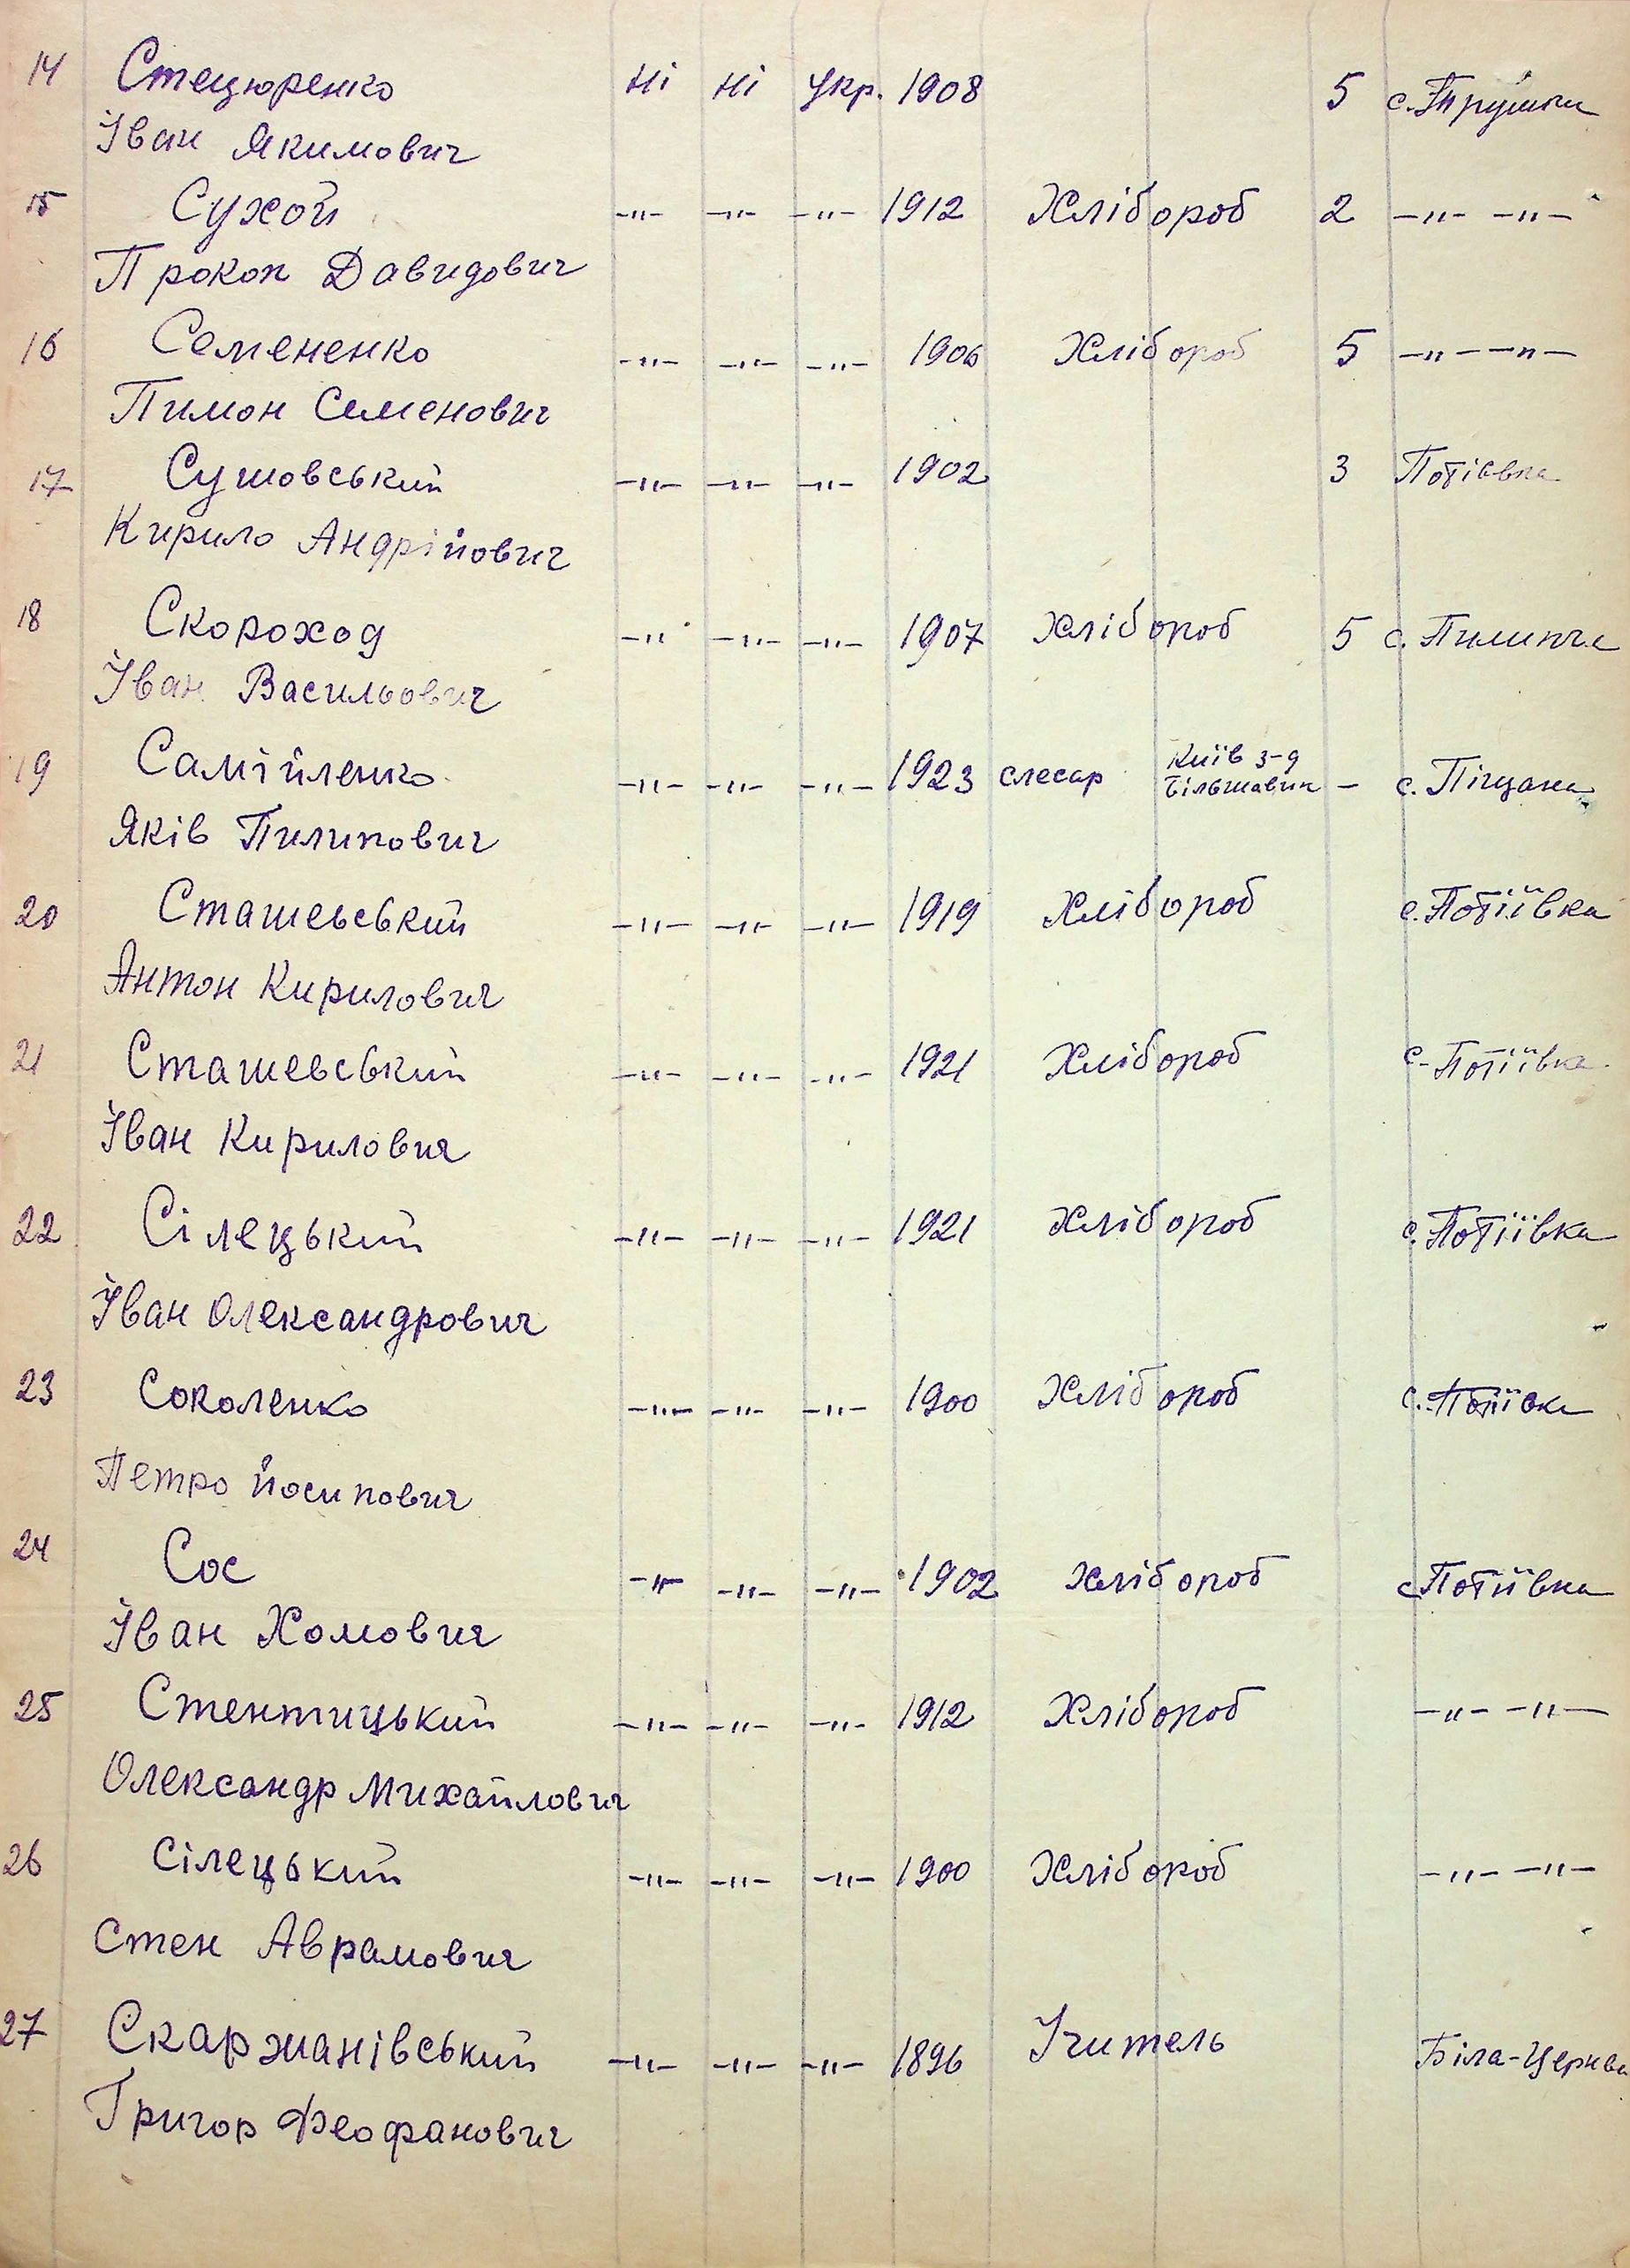 14 Стецюренко Ні Ні Укр. 1908 5 с. Трушки
Іван Якимович
15 Сухой -"- -"- -"- 1912 Хлібороб 2 -"- -"-
Прокоп Давидович
16 Семененко -"- -"- -"- 1906 Хлібороб 5 -"- -"-
Пимон Семенович
17 Сушовський -"- -"- -"- 1902 3 Потіївка
Кирило Андрійович
18 Скороход -"- -"- -"- 1907 Хлібороб 5 с. Пилипча
Іван Васильович
19 Самійленко -"- -"- -"- 1923 слесар Київ з-д Більшавик - с. Піщана
Яків Пилипович
20 Сташевський -"- -"- -"- 1919 Хлібороб с. Потіївка
Антон Кирилович
21 Сташевський -"- -"- -"- 1921 Хлібороб с-Потіївка
Іван Кирилович
22 Сілецький -"- -"- -"- 1921 Хлібороб с. Потіївка
Іван Олександрович
23 Соколенко -"- -"- -"- 1900 Хлібороб с.
Петро Йосипович
24 Сос -"- -"- -"- 1902 Хлібороб с Потіївка
Іван Хомович
25 Стентицький -"- -"- -"- 1912 Хлібороб -"- -"-
Олександр Михайлович
26 Сілецький -"- -"- -"- 1900 Хлібороб -"- -"-
Степ Аврамович
27 Скаржанівський -"- -"- -"- 1896 Учитель Біла-Церква
Григор Феофанович